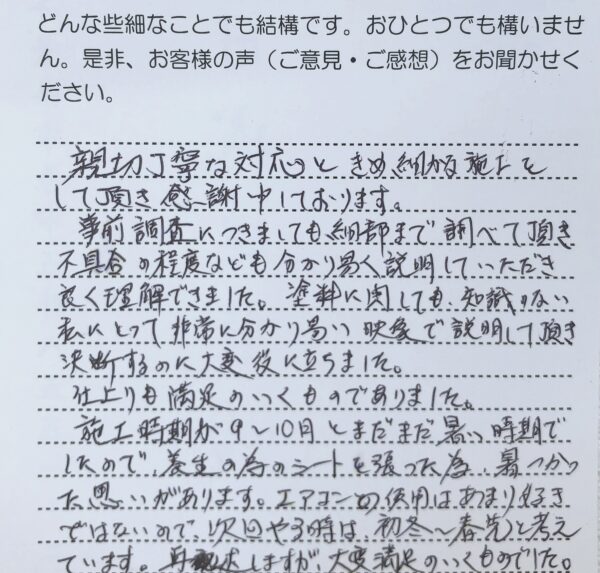 どんな些細なことでも結構です。おひとつでも構いませ
ん。是非、お客様の声（ご意見・ご感想）をお聞かせく
ださい。
親切丁寧な対応ときめ細かな施工を
して頂き感謝申しております。
事前調査につきましても細部まで調べて頂き
不具合の程度なども分かり易く説明していただき
良く理解できました。塗料に関しても、知識のない
私にとって非常に分かり易い映像で説明して頂き
決断するのに大変役に立ちました。
仕上りも満足のいくものでありました。
施工時期が9〜10月とまだまだ暑い時期で
したので、養生の為のシートを張った為、暑つかっ
た思いがあります。エアコンの使用はあまり好き
ではないので、次回やる時は、初冬〜春先と考え
ています。再 しますが、大変満足のいくものでした。